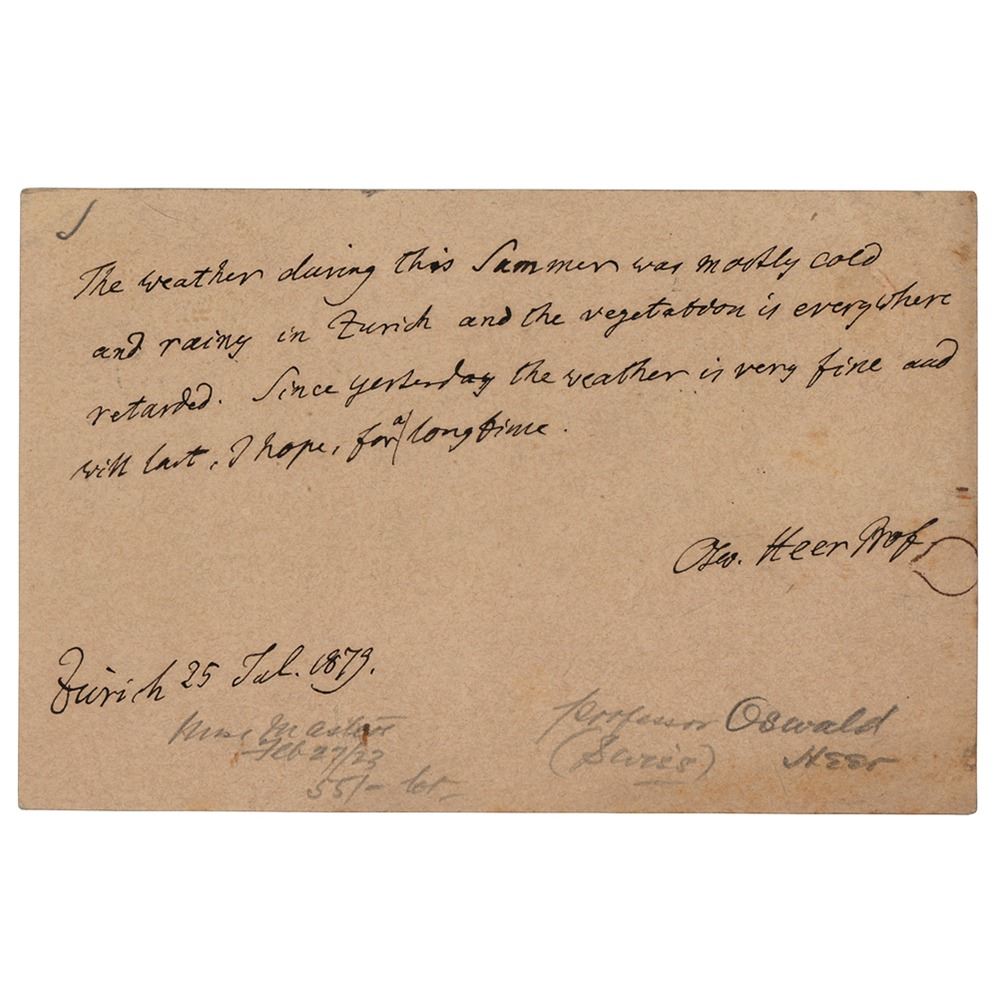 The weather during this Summer was mostly cold
and rainy in Zurich and the vegetation is everywhere
retarded. Since yesterday the weather is very fine and
will last, I hope, for a long time.
Osw. Heer Prof.
Zürich 25 Jul. 1879.
Professor Oswald
(Swiss) Heer
Feb 27/23
55/- lot